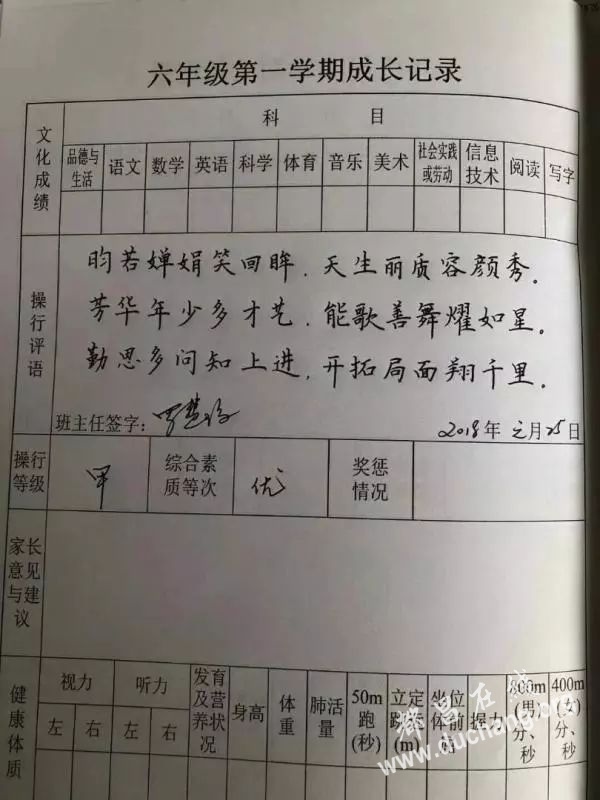 六年级第一学期成长记录
文化成绩
科 目
品德与生活 语文 数学 英语 科学 体育 音乐 美术 社会实践或劳动 信息技术 阅读 写字
操行评语
昀若婵娟笑回眸，天生丽质容颜秀。
芳华年少多才艺，能歌善舞耀如星。
勤思多问知上进，开拓局面翔千里。
班主任签字：
2018年元月25日
操行等级 甲 综合素质等次 优 奖惩情况
家长意见与建议
健康体质
视力 听力 发育及营养状况 身高 体重 肺活量 50m跑(秒) 立定跳远(m) 坐位体前 握力 800m(男)分、秒 400m(女)分、秒
左 右 左 右
都昌在线
www.duchang.org